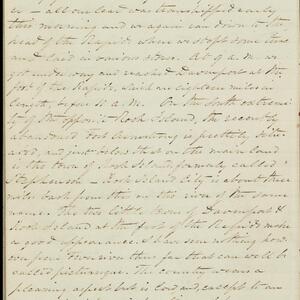 er - All our lead was transhipped early
this morning and we again ran down to the
head of the Rapids, where we stopt some time
and laid in various stores. At 9 A.M. we
got under way and reached Davenport at the
foot of the Rapids, which are eighteen miles in
length, before 11 A.M. On the south extremi-
ty of the opposite Rock Island, the recently
abandoned Fort Armstrong is prettily situ-
ated, and just below that on the main land
is the town of Rock Island formerly called
Stephenson - Rock Island City is about three
miles back from this on the river of the same
name. The two little towns of Davenport &
Rock Island at the foot of the Rapids make
a good appearance. I have seen nothing how-
ever since down river thus far that can well be
called picturesque. The country wears a
pleasing aspect but is low and, except to an